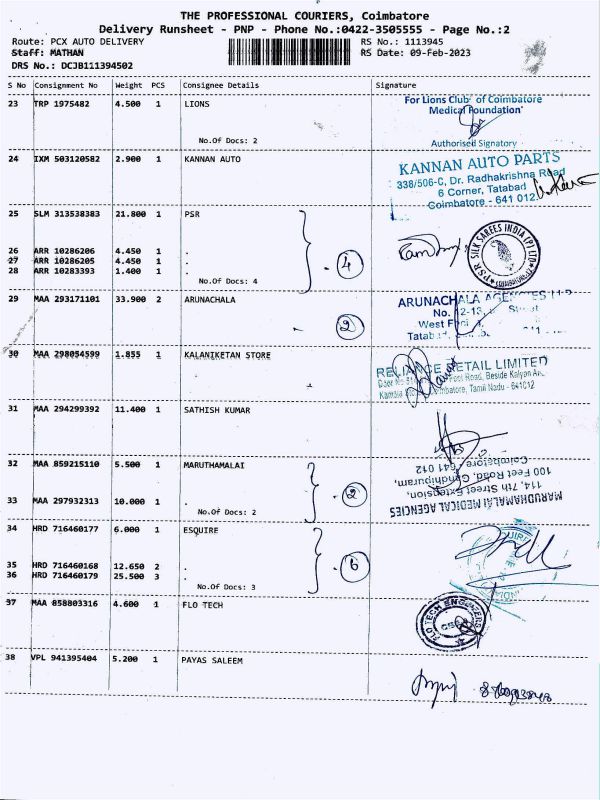 THE PROFESSIONAL COURIERS, Coimbatore
Delivery Runsheet - PNP - Phone No.:0422-3505555 - Page No.:2
Route: PCX AUTO DELIVERY RS No.: 1113945
Staff: MATHAN RS Date: 09-Feb-2023
DRS No.: DCJB111394502
S No Consignment No Weight PCS Consignee Details Signature
23 TRP 1975482 4.500 1 LIONS For Lions Club of Coimbatore
Medical Foundation
No.Of Docs: 2
Authorised Signatory
24 IXM 503120582 2.900 1 KANNAN AUTO KANNAN AUTO PARTS
338/506-C, Dr. Radhakrishna Road
6 Corner, Tatabad
Coimbatore - 641 012
25 SLM 313538383 21.800 1 PSR
PSR SILK SAREES INDIA (P) LTD
26 ARR 10286206 4.450 1 .
27 ARR 10286205 4.450 1 . 4
28 ARR 10283393 1.400 1 .
No.Of Docs: 4
29 MAA 293171101 33.900 2 ARUNACHALA ARUNACHALA AGENCIES
2
30 MAA 298054599 1.855 1 KALANIKETAN STORE RELIANCE RETAIL LIMITED
Road, Beside Kalyan
Tamil Nadu - 641012
31 MAA 294299392 11.400 1 SATHISH KUMAR
32 MAA 859215110 5.500 1 MARUTHAMALAI
2
33 MAA 297932313 10.000 1 .
No.Of Docs: 2
MARUDHAMALAI MEDICAL AGENCIES
114, 7th Street Extension,
100 Feet Road, Gandhipuram,
Coimbatore - 641 012
34 HRD 716460177 6.000 1 ESQUIRE
35 HRD 716460168 12.650 2 . 6
36 HRD 716460179 25.500 3 .
No.Of Docs: 3
37 MAA 858803316 4.600 1 FLO TECH FLO TECH ENGINEERS
38 VPL 941395404 5.200 1 PAYAS SALEEM